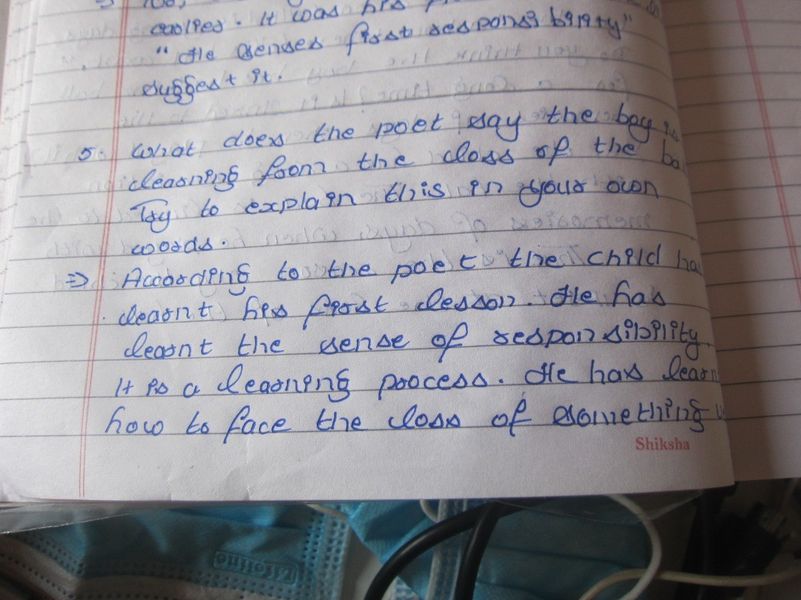 earlier. It was his
"He senses first responsibility"
suggest it.
5. What does the poet say the boy is
learning from the loss of the ba
Try to explain this in your own
words.
⇒ According to the poet the child ha
learnt his first lesson. He has
learnt the sense of responsibility.
It is a learning process. He has learn
how to face the loss of something
Shiksha
Lifeline